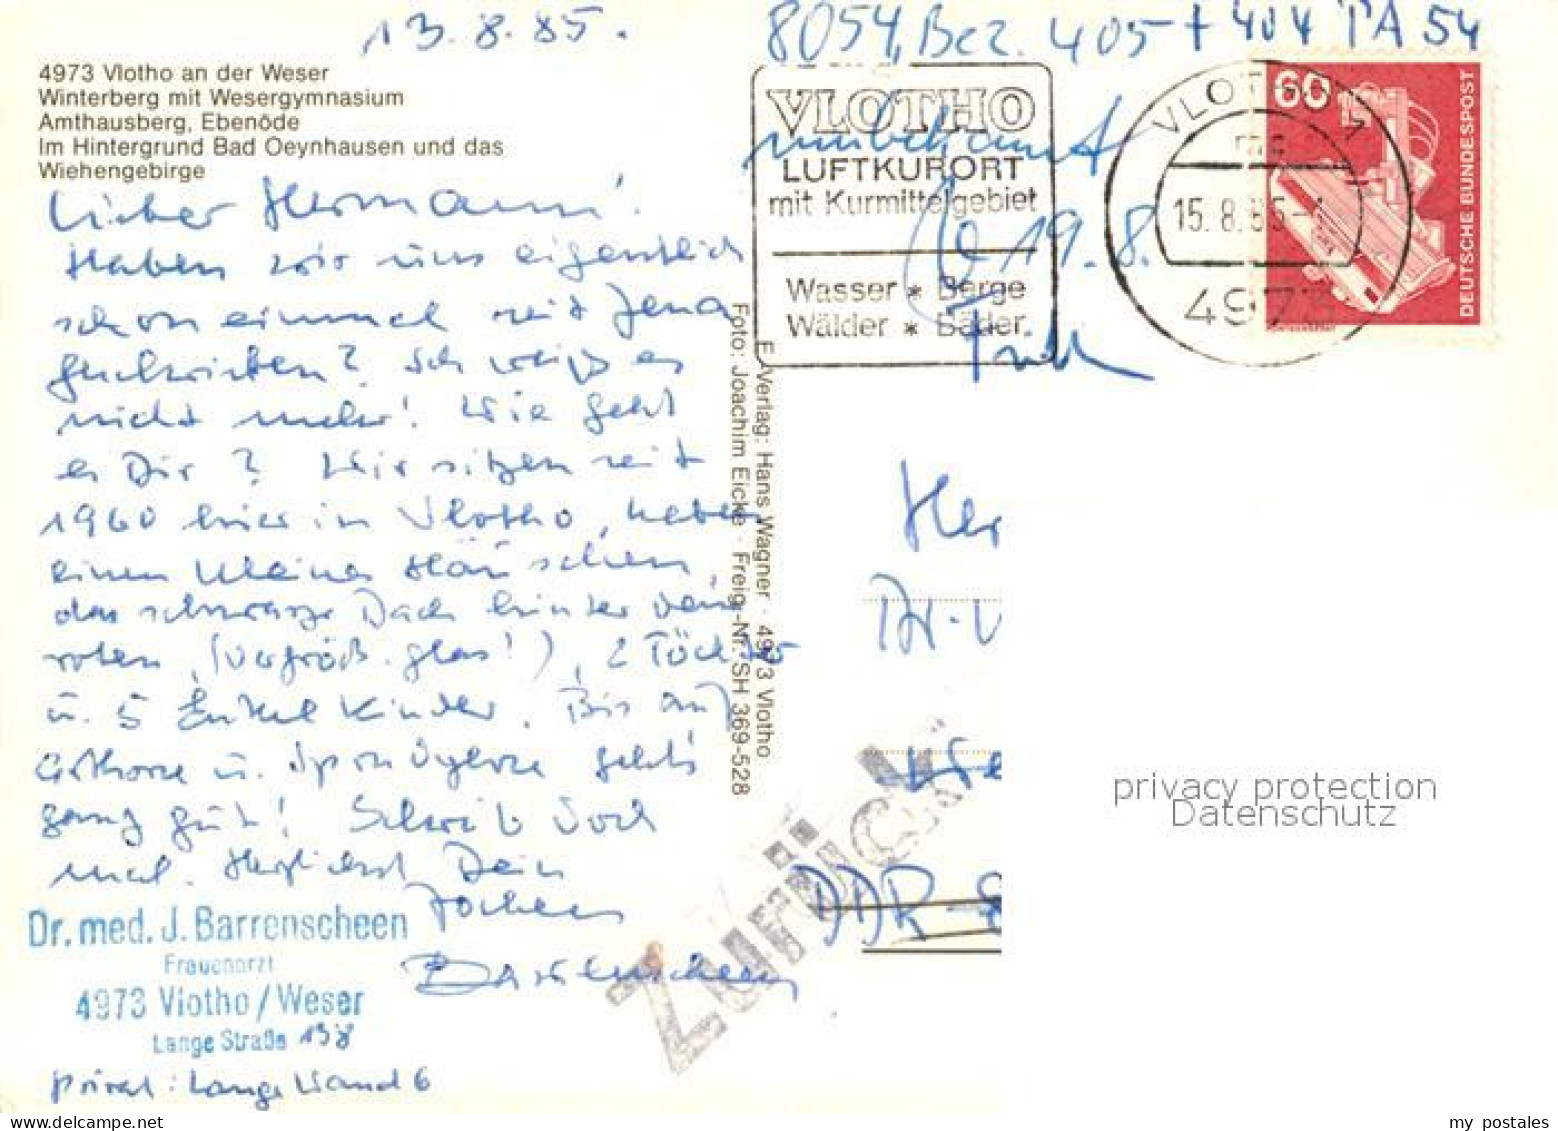 13. 8. 85.
8054, Bez. 405 + 404 PA 54
4973 Vlotho an der Weser
Winterberg mit Wesergymnasium
Amthausberg, Ebenöde
Im Hintergrund Bad Oeynhausen und das
Wiehengebirge
Lieber Hermann!
Haben wir uns eigentlich
schon einmal seit Jena
geschrieben? Ich weiß es
nicht mehr! Wie geht
es Dir? Wir sitzen seit
1960 hier in Vlotho, haben
einen kleines Häuschen,
das schwarze Dach hinter dem
roten, (Vergröß.glas!), 2 Töchter
u. 5 Enkelkinder. Bis auf
Arthrose u. Spondylose geht's
ganz gut! Schreib doch
mal. Herzlichst Dein
Jochen
Barrenscheen
Dr. med. J. Barrenscheen
Frauenarzt
4973 Vlotho/Weser
Lange Straße 138
Privat: Lange Wand 6
E-Verlag: Hans Wagner · 4973 Vlotho
Foto: Joachim Eicke · Freig.-Nr. SH 369-528
VLOTHO
LUFTKURORT
mit Kurmittelgebiet
Wasser * Berge
Wälder * Bäder
unbekannt
19. 8.
VLOTHO 1
15. 8. 85
4973
60
DEUTSCHE BUNDESPOST
Her
DDR-
Zurück
privacy protection
Datenschutz
my postales